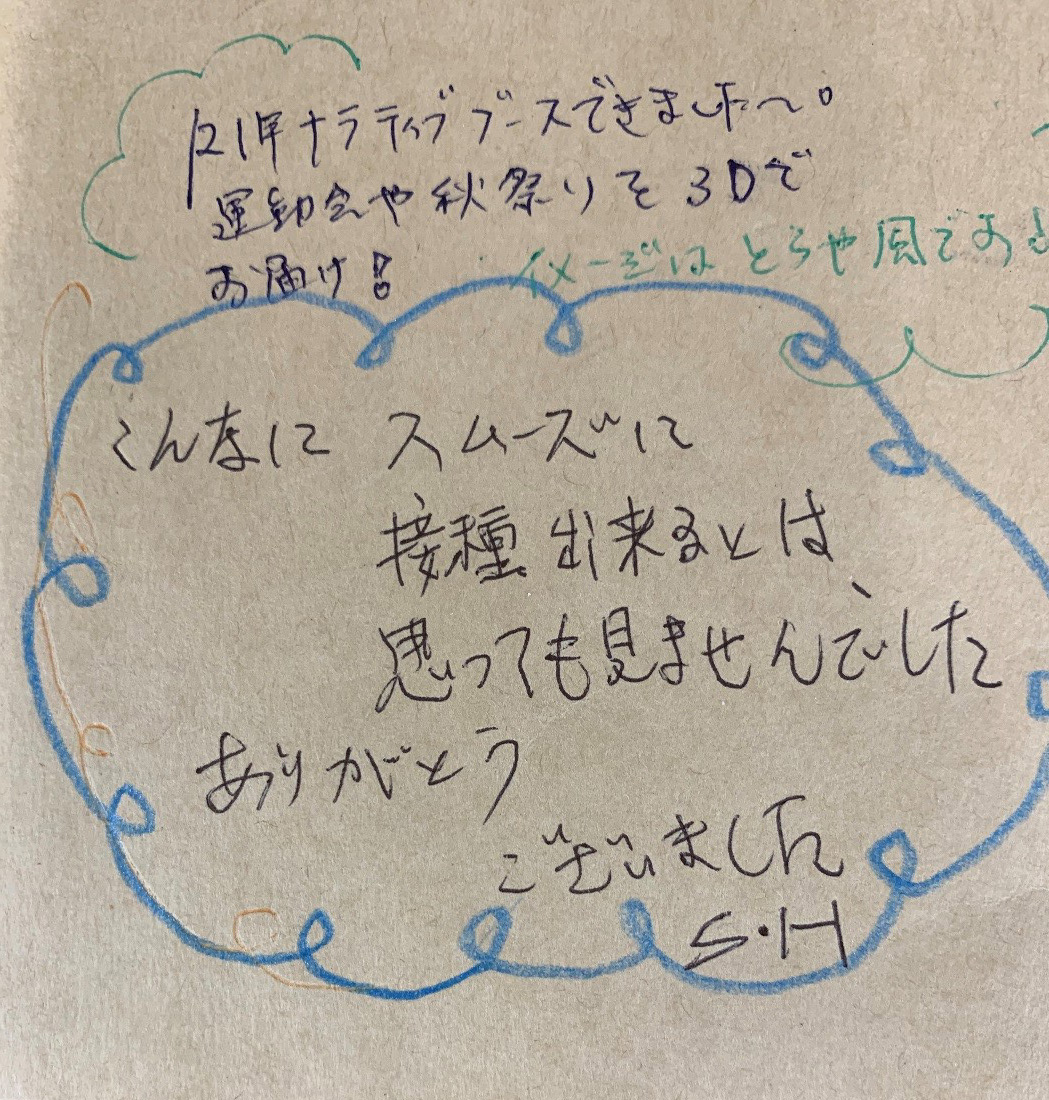 21年ナラティブブースできました〜。
運動会や秋祭りを3Dで
お届け!
イメージはとらや風です!
こんなに スムーズに
接種出来るとは、
思っても見ませんでした
ありがとう
ございました
S・H